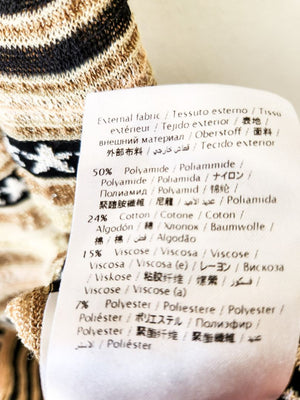 External fabric / Tessuto esterno / Tissu
extérieur / Tejido exterior / 表地 /
внешний материал / Oberstoff / 面料 /
外部布料 / قماش خارجي / Tecido exterior
50% Polyamide / Poliammide /
Polyamide / Poliamida / ナイロン /
Полиамид / Polyamid / 锦纶 /
聚醯胺纖維 / 尼龍 / / Poliamida
24% Cotton / Cotone / Coton /
Algodón / 綿 / Хлопок / Baumwolle /
棉 / 棉 / قطن / Algodão
15% Viscose / Viscosa / Viscose /
Viscosa / Viscosa (e) / レーヨン / Вискоза
/ Viskose / 粘胶纤维 / 嫘縈 / فسكوز /
Viscose / Viscose (a)
7% Polyester / Poliestere / Polyester /
Poliéster / ポリエステル / Полиэфир /
Polyester / 聚酯纤维 / 聚酯纖維 /
/ Poliéster